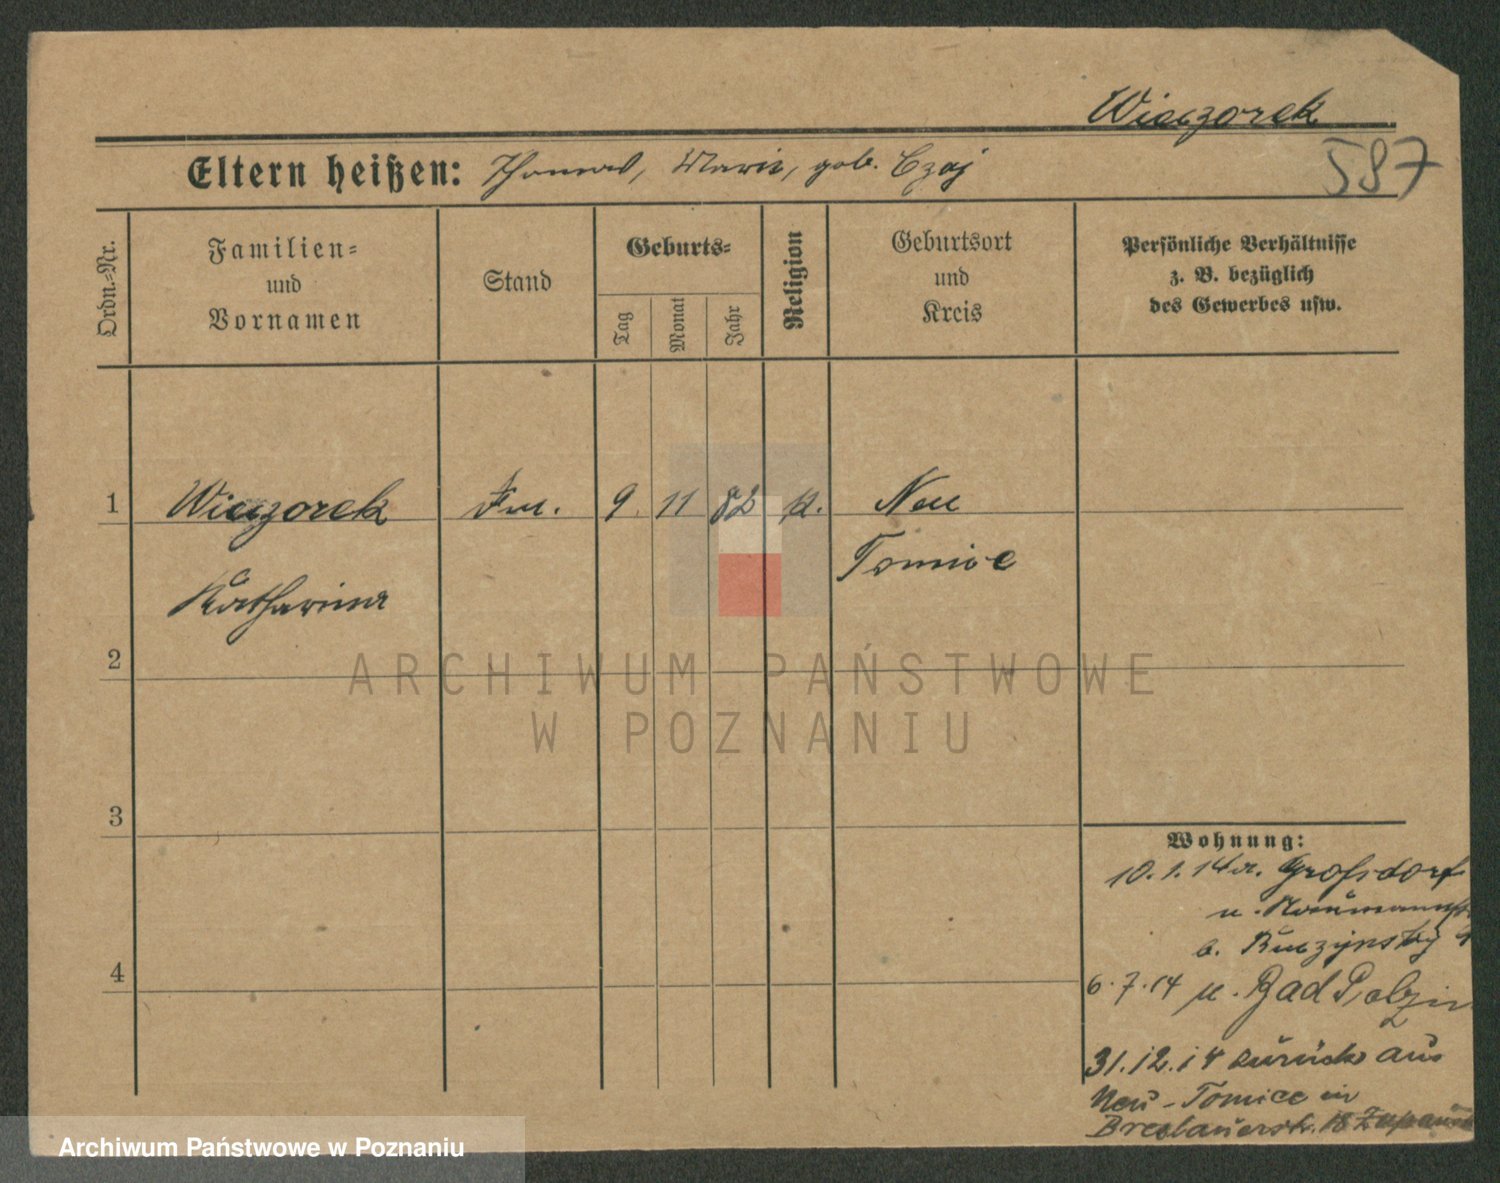 Wieczorek
587
Eltern heißen: Thomas, Marie, geb. Czaj
Ordn.-Nr.
Familien-
und
Vornamen
Stand
Geburts-
Tag
Monat
Jahr
Religion
Geburtsort
und
Kreis
Persönliche Verhältnisse
z. B. bezüglich
des Gewerbes usw.
1 Wieczorek 9. 11 82 k. Neu
Tomice
Katharina
2
ARCHIWUM PAŃSTWOWE
W POZNANIU
3
Wohnung:
10. 1. 14 a. Grofsdorf
n. Naumannstr
b.
4
6. 7. 14 n. Bad Polzin
31. 12. 14 zurück aus
Neu-Tomice in
Breslauerstr. 18
Archiwum Państwowe w Poznaniu